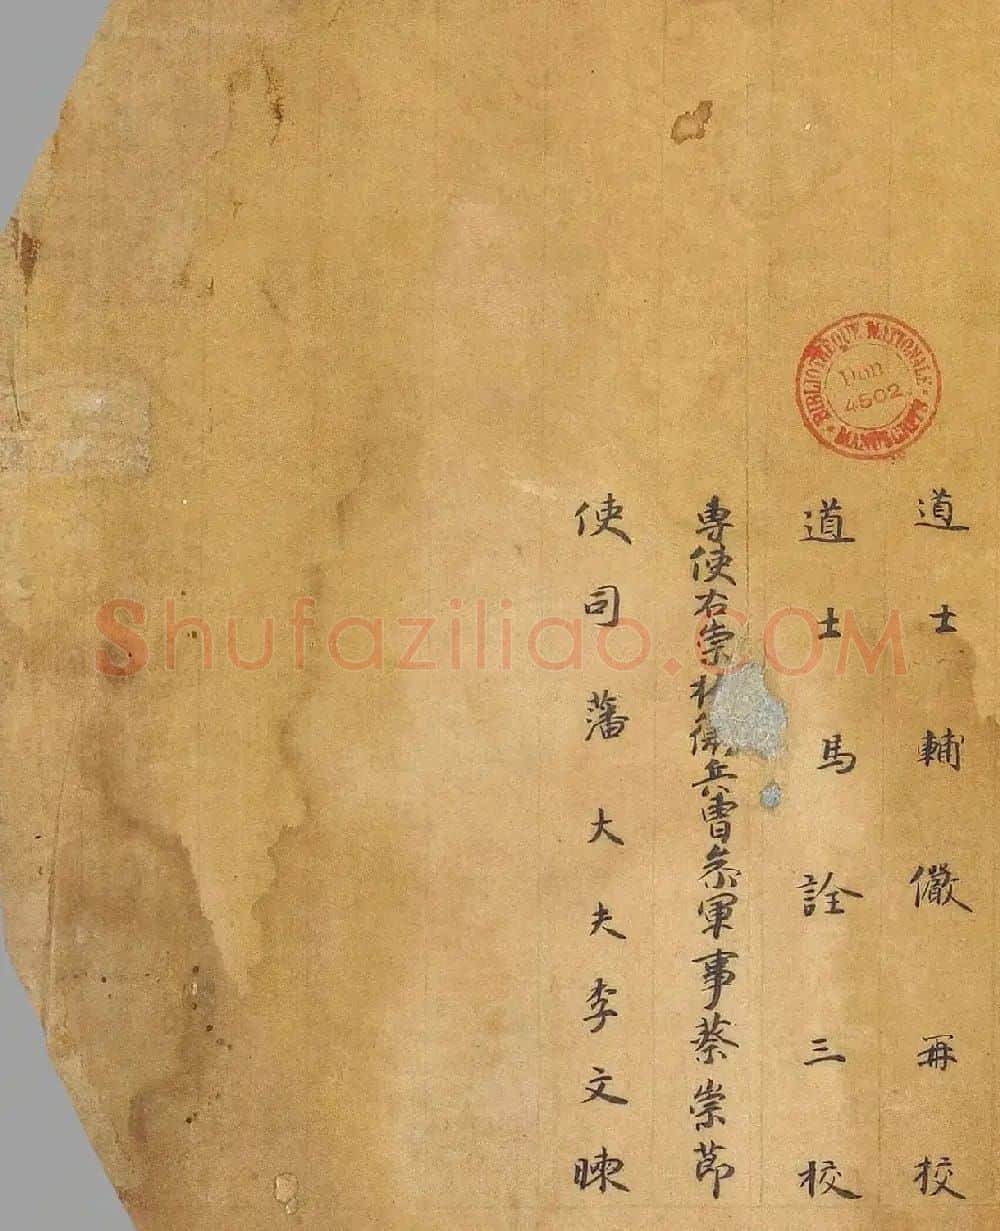 道士輔儼再校
道士馬詮三校
専使右崇掖衛兵曹叅軍事蔡崇節
使司藩大夫李文暕
BIBLIOTHÈQUE NATIONALE
Don
4502
MANUSCRITS
Shufaziliao.COM